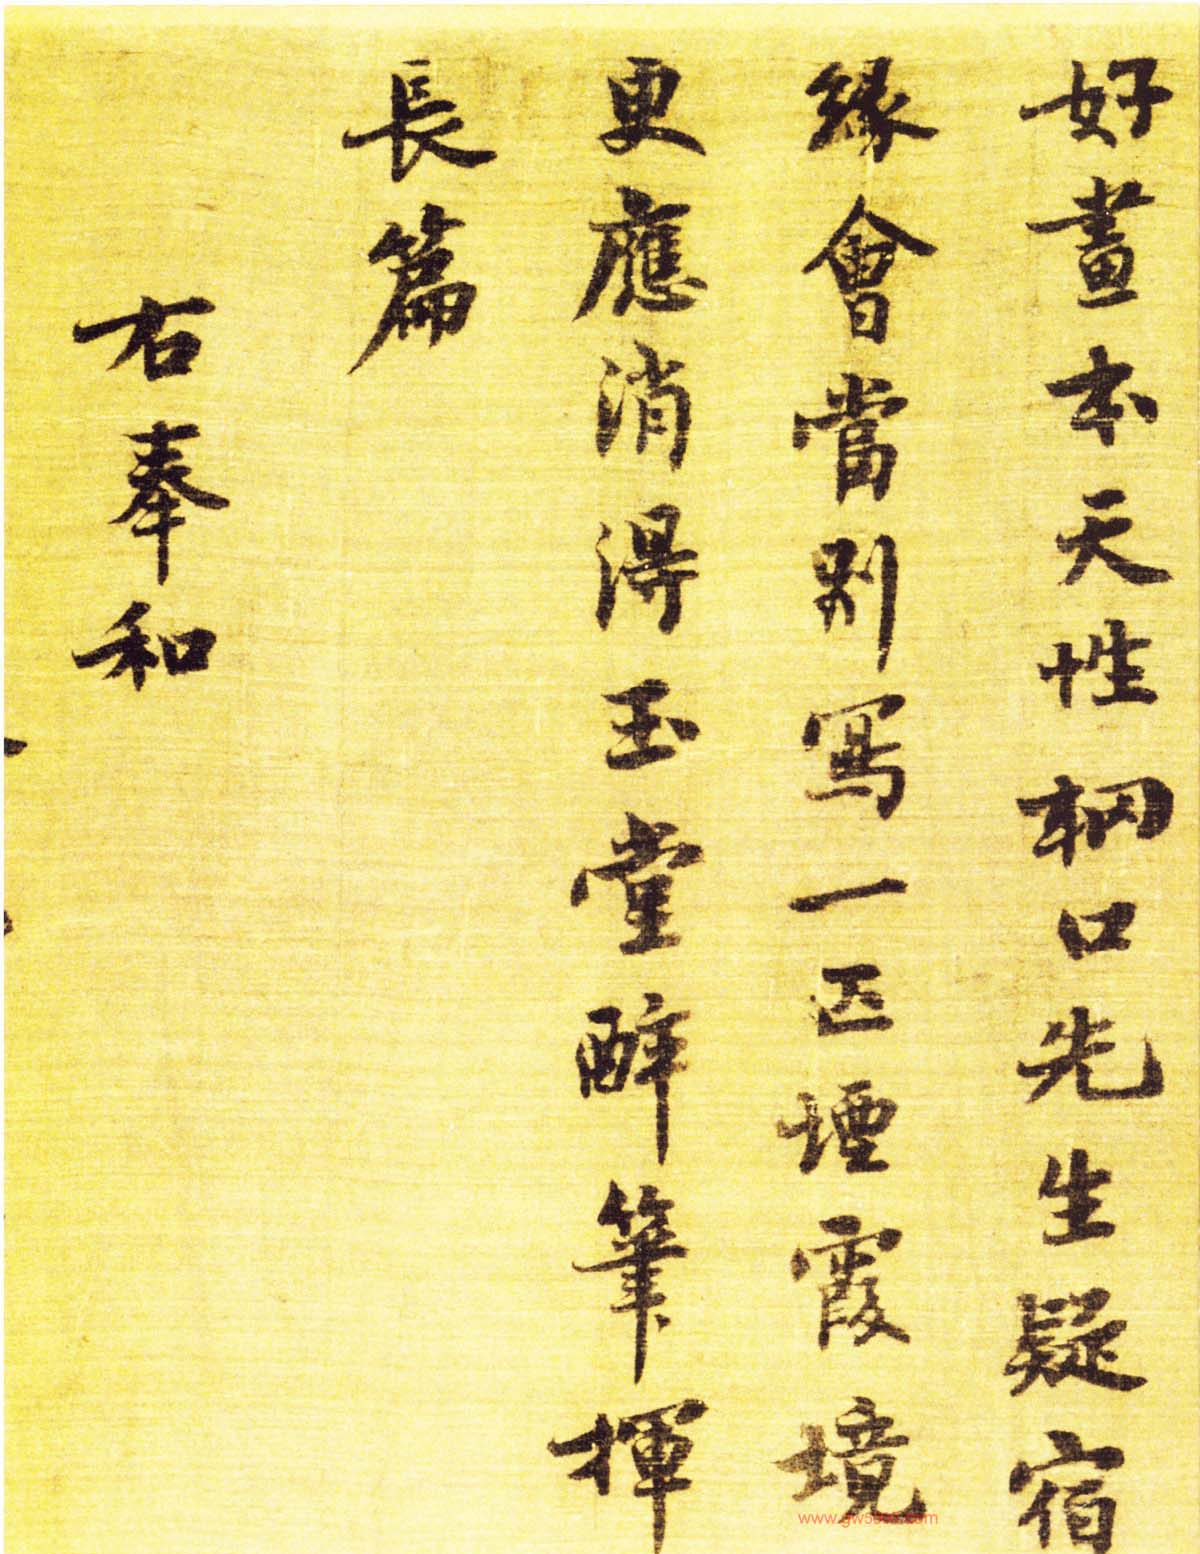 好畫本天性輞口先生疑宿
緣會當別寫一匹煙霞境
更應消得玉堂醉筆揮
長篇
右奉和